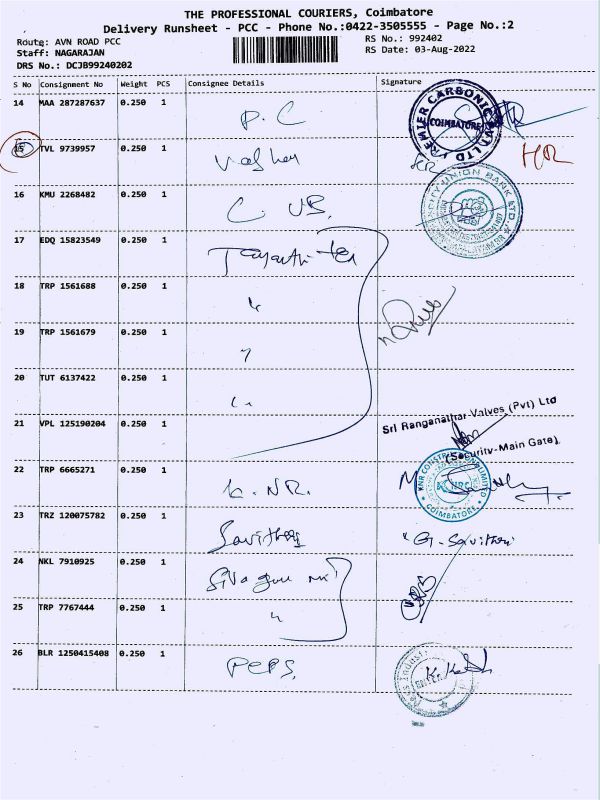 THE PROFESSIONAL COURIERS, Coimbatore
Delivery Runsheet - PCC - Phone No.:0422-3505555 - Page No.:2
Route: AVN ROAD PCC
RS No.: 992402
Staff: NAGARAJAN
RS Date: 03-Aug-2022
DRS No.: DCJB99240202
S No Consignment No Weight PCS Consignee Details Signature
14 MAA 287287637 0.250 1 P.C
PREMIER CARBONIC PVT LTD COIMBATORE
15 TVL 9739957 0.250 1 HR
16 KMU 2268482 0.250 1 C UB.
CITY UNION BANK LTD.
17 EDQ 15823549 0.250 1
18 TRP 1561688 0.250 1 "
19 TRP 1561679 0.250 1 "
20 TUT 6137422 0.250 1 "
21 VPL 125190204 0.250 1
Sri Ranganathar Valves (Pvt) Ltd
(Security-Main Gate)
22 TRP 6665271 0.250 1 K.NR.
KNR CONSTRUCTIONS LIMITED KNRC COIMBATORE
23 TRZ 120075782 0.250 1 Savithri G. Savithri
24 NKL 7910925 0.250 1
25 TRP 7767444 0.250 1 "
26 BLR 1250415408 0.250 1 PePS.